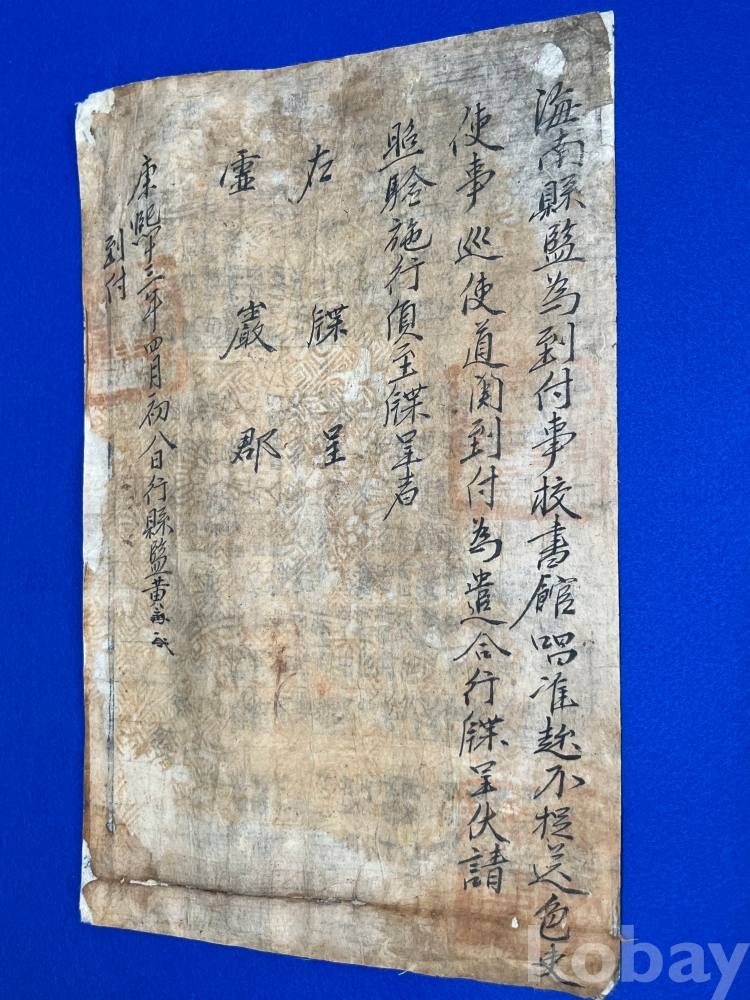 海南縣監為到付事校書館唱准趂不捉送色吏
使事巡使道関到付為遣合行牒呈伏請
照驗施行須至牒呈者
右牒呈
靈巖郡
康熙十三年四月初八日行縣監黃
到付
kobay